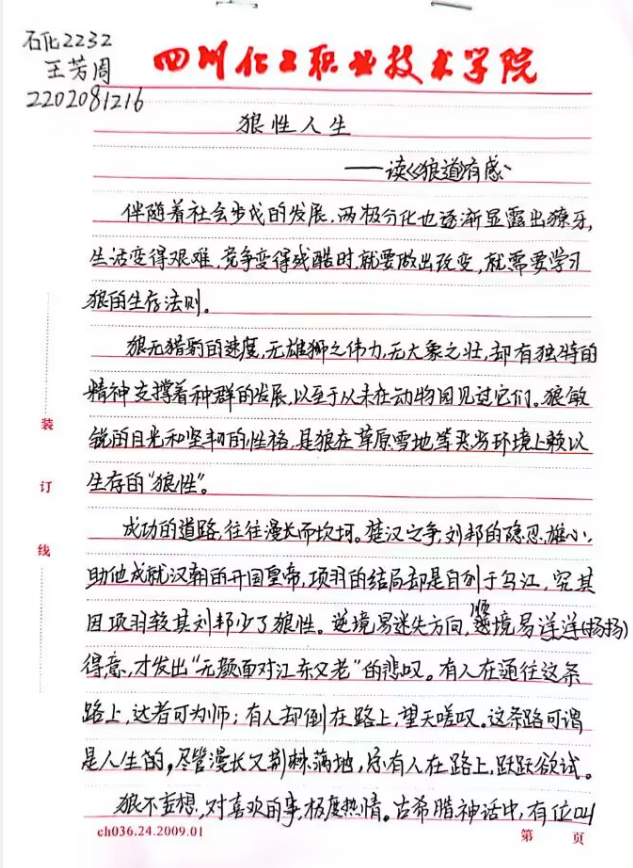 石化2232
王芳周
2202081216
四川化工职业技术学院
狼性人生
——读《狼道》有感
伴随着社会步伐的发展，两极分化也逐渐显露出獠牙，
生活变得艰难，竞争变得残酷时，就要做出改变，就需要学习
狼的生存法则。
狼无猎豹的速度，无雄狮之伟力，无大象之壮，却有独特的
精神支撑着种群的发展，以至于从未在动物园见过它们。狼敏
锐的目光和坚韧的性格，是狼在草原雪地等恶劣环境上赖以
生存的“狼性”。
成功的道路，往往漫长而坎坷。楚汉之争，刘邦的隐忍、雄心，
助他成就汉朝的开国皇帝，项羽的结局却是自刎于乌江，究其
因项羽较其刘邦少了狼性。逆境易迷失方向，顺境易洋洋(扬扬)
得意，才发出“无颜面对江东父老”的悲叹。有人在通往这条
路上，达者可为师；有人却倒在路上，望天嗟叹。这条路可谓
是人生的，尽管漫长又荆棘满地，总有人在路上，跃跃欲试。
狼不妄想，对喜欢的事，极度热情。古希腊神话中，有位叫
装
订
线
ch036.24.2009.01
第 页